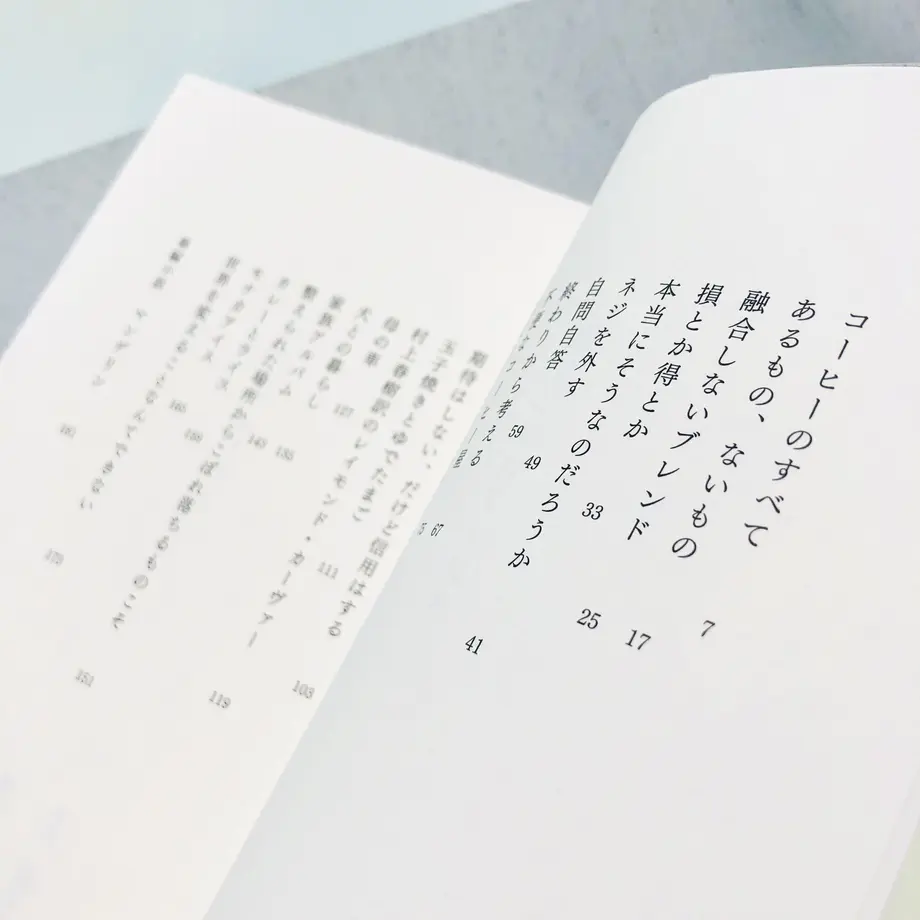 コーヒーのすべて 7
あるもの、ないもの 17
融合しないブレンド 25
損とか得とか 33
本当にそうなのだろうか 41
ネジを外す 49
自問自答 59
終わりから考える 67
期待はしない、だけど信用はする 103
玉子焼きとゆでたまご 111
村上春樹訳のレイモンド・カーヴァー 119
母の車 127
犬との暮らし
家族アルバム
整えられた場所からこぼれ落ちるものこそ 151
カレーとライス
世界を変えることなんてできない
マンデリン 181